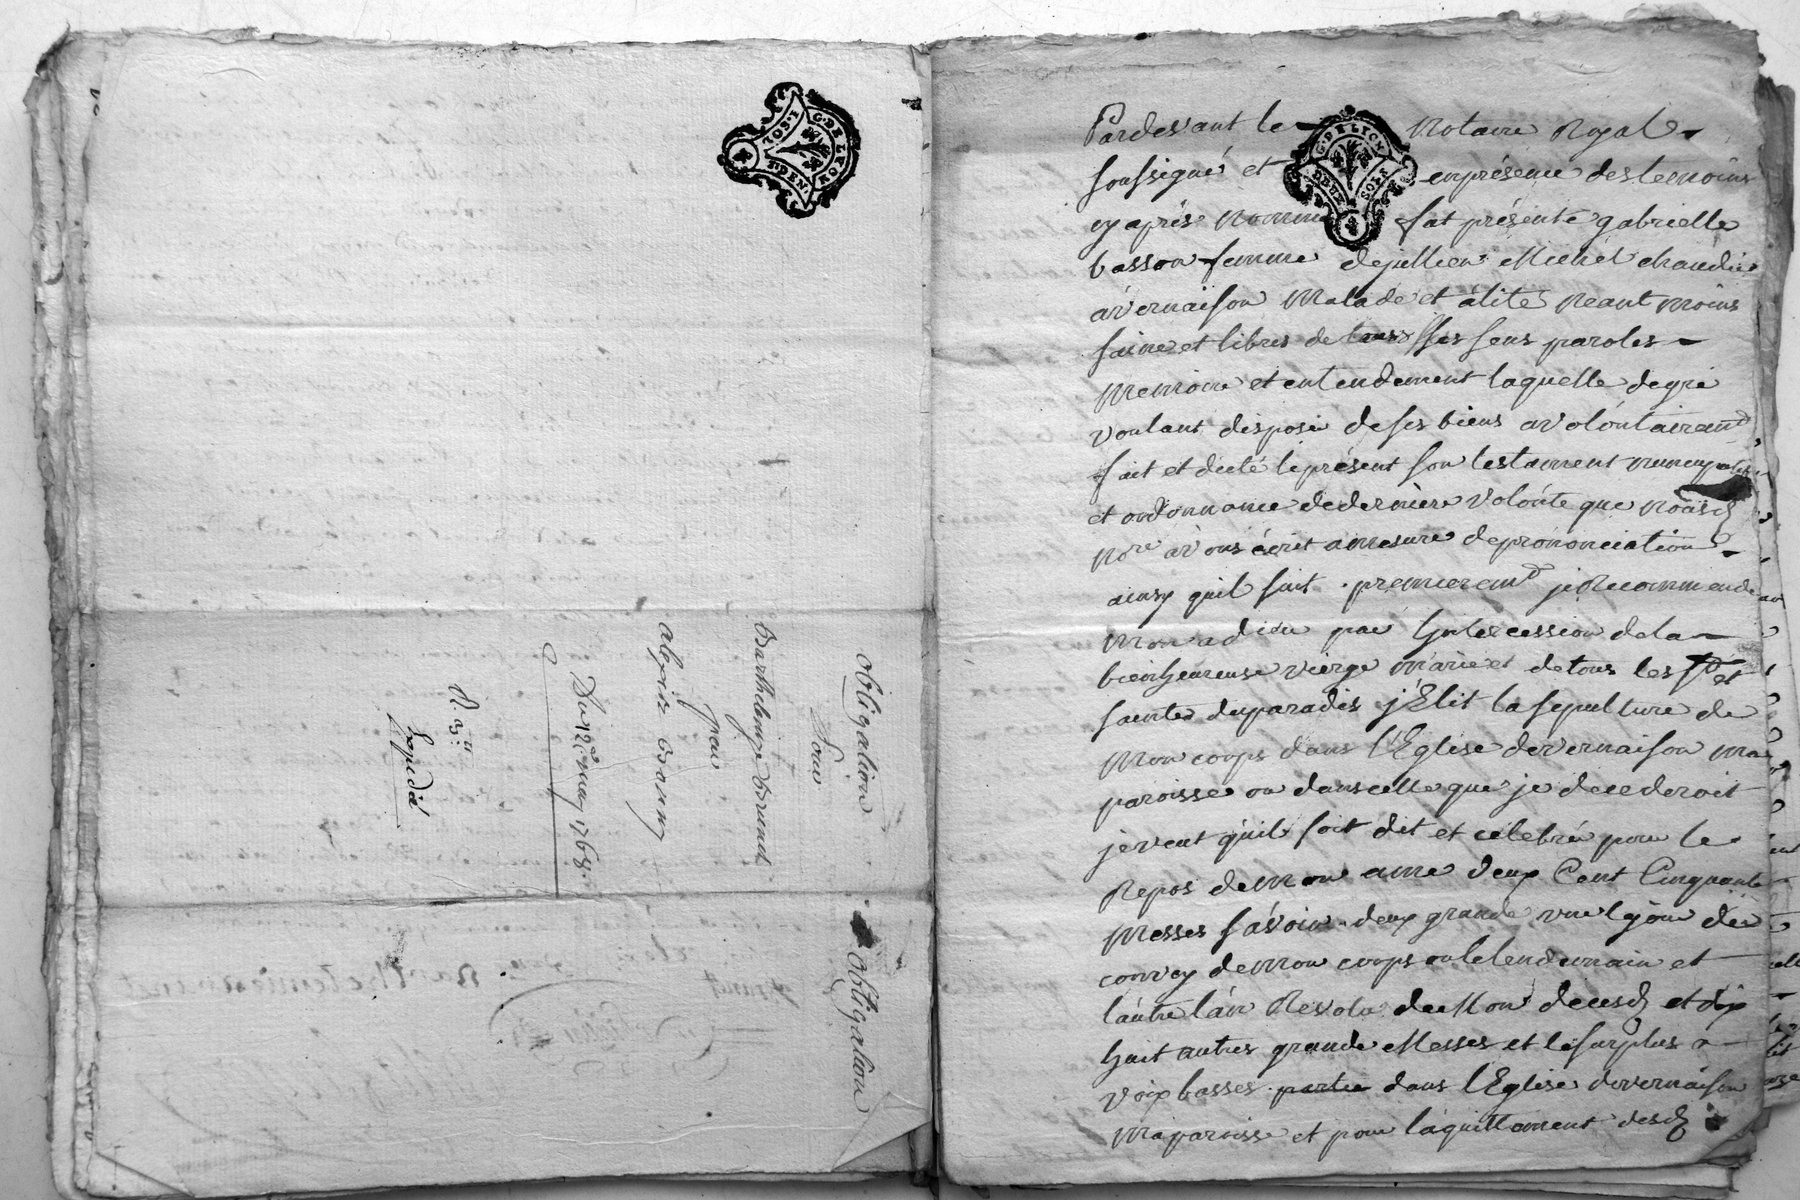 G. DE LYON
DEUX SOLS
obligation
Pour
Barthelemy brunet
par
Du 12e may 1768
Expedié
obligation
G. DE LYON
DEUX SOLS
Pardevant le Notaire Royal
soussigné et en présence des temoins
cy après nommé fut présente gabrielle
basson femme de jullien Michel chaudié
a vernaison Malade et alité neant moins
saine et libres de tous ses sens paroles
Memoire et entendement laquelle de gré
voulant disposé de ses biens a volontairemt
fait et dicté le présent son testament nuncupatif
et ordonnance de dernière volonté que nousd
Nore avons écrit a mesure de prononciation
ainsy quil suit. premieremt je Recommende
mon a dieu par l'intercession de la
bienheureuse vierge Marie et de tous les sts et
saintes du paradis j'Elit la sepulture de
Mon corps dans l'Eglise de vernaison ma
paroisse ou dans celle que je decederoit
je veut quil soit dit et célebré pour le
Repos de mon ame deux Cent Cinquante
Messes savoir deux grande, une l jour de
convoy de mon corps ou le lendemain et
l'autre l'an Revolu de Mon deces et dix
huit autres grande Messes et le surplus a
voix basses partie dans l'Eglise de vernaison
Ma paroisse et pour l'aquittement desd